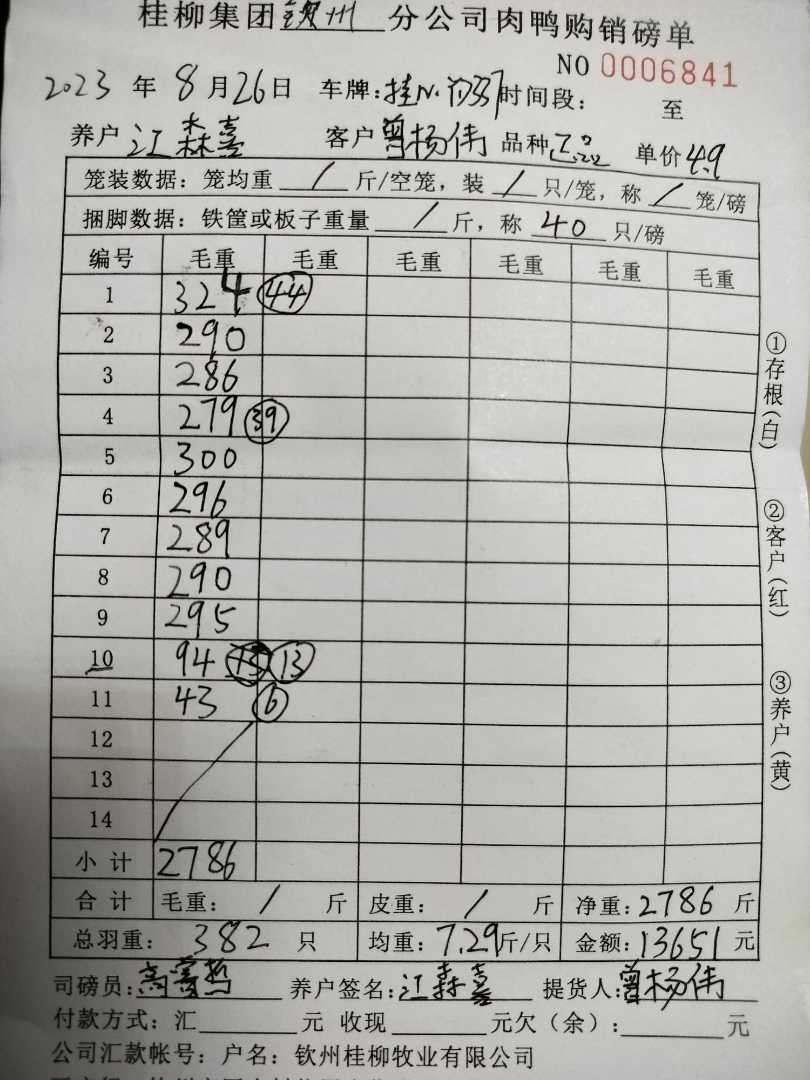 桂柳集团钦州分公司肉鸭购销磅单
NO 0006841
2023 年 8 月 26 日 车牌: 时间段: 至
养户 江森喜 客户 曾杨伟 品种 正品 单价 4.9
笼装数据: 笼均重 / 斤/空笼, 装 / 只/笼, 称 / 笼/磅
捆脚数据: 铁筐或板子重量 / 斤, 称 40 只/磅
编号 毛重 毛重 毛重 毛重 毛重 毛重
1 324 44
2 290
3 286
4 279 39
5 300
6 296
7 289
8 290
9 295
10 94 13 13
11 43 6
12
13
14
小计 2786
合计 毛重: / 斤 皮重: / 斤 净重: 2786 斤
总羽重: 382 只 均重: 7.29 斤/只 金额: 13651 元
司磅员: 养户签名: 江森喜 提货人: 曾杨伟
付款方式: 汇 元 收现 元欠(余): 元
公司汇款帐号: 户名: 钦州桂柳牧业有限公司
①存根(白)
②客户(红)
③养户(黄)